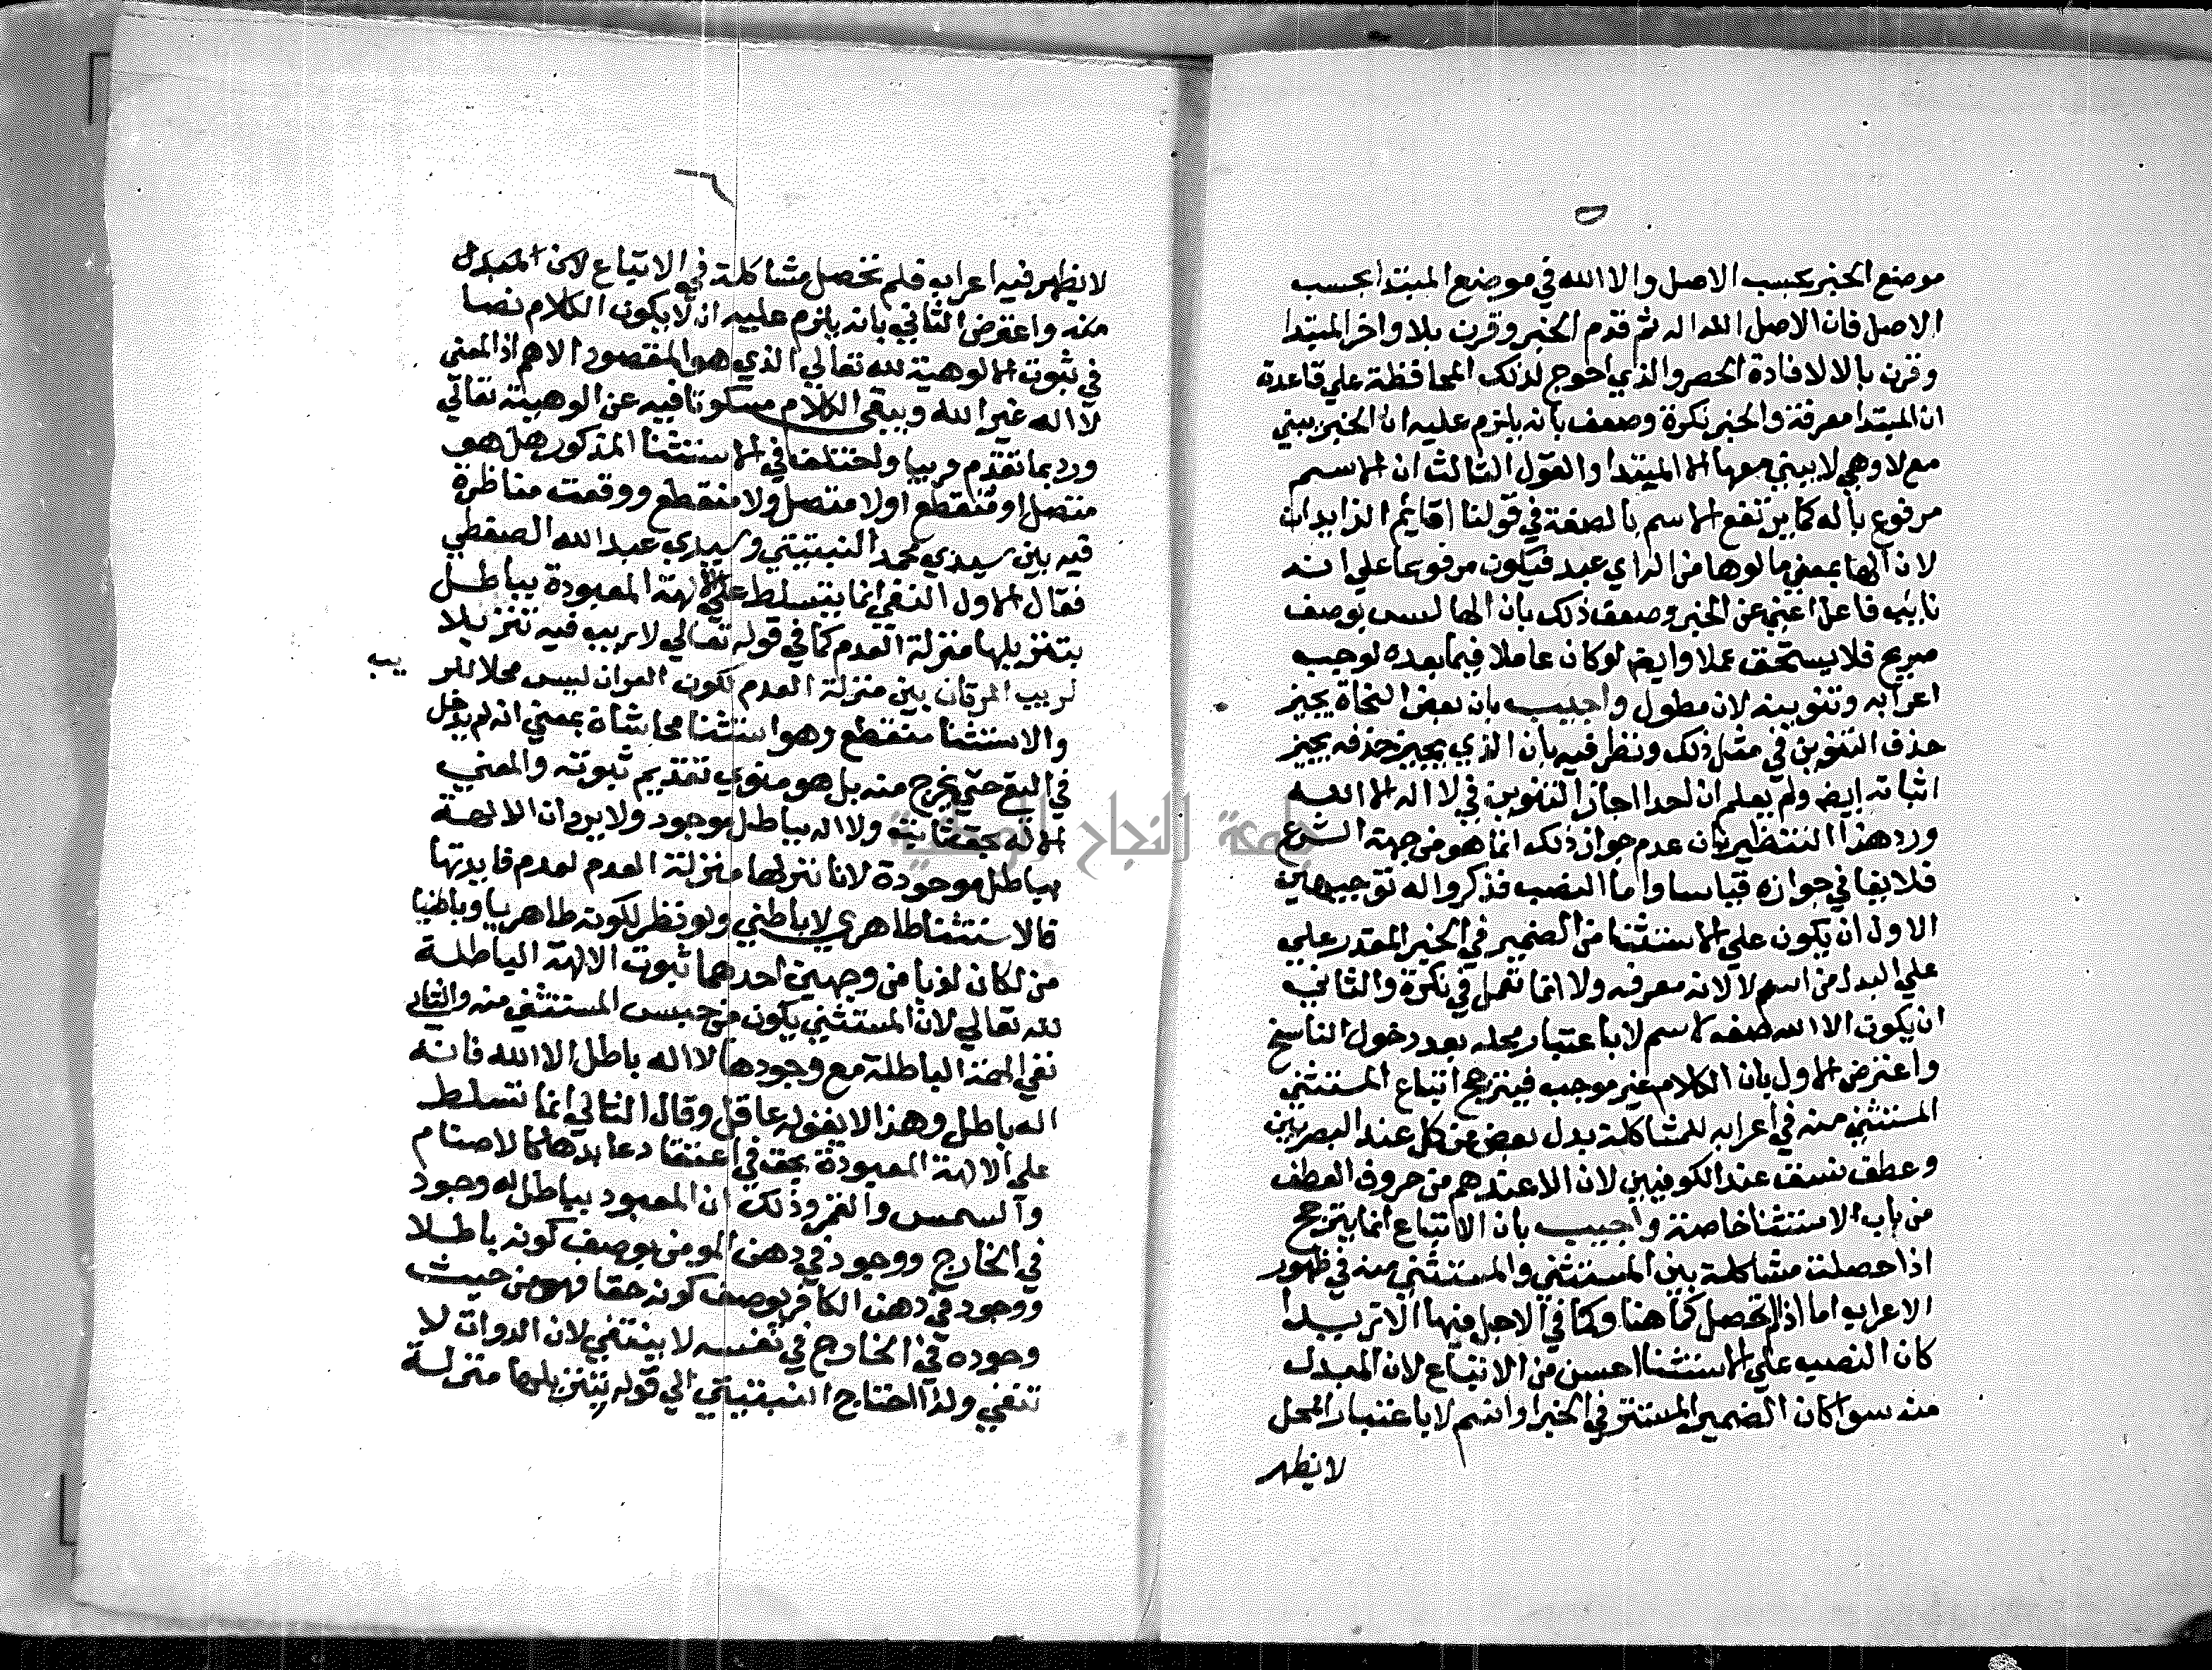 ٥
موضع الخبر بحسب الاصل والا الله في موضع المبتدا بحسب
الاصل فان الاصل الله اله ثم قدم الخبر وقرن بلا واخر المبتدا
وقرن بالا لافادة الحصر والذي احوج لذلك المحافظة علي قاعدة
ان المبتدا معرفة والخبر نكرة وضعف بانه يلزم عليه ان الخبر يبني
مع لا وهي لا يبني معها الا المبتدا والقول الثالث ان الاسم
مرفوع باله كما يرتفع الاسم بالصفة في قولنا اقايم الزايدان
لان الها بمعني مالوها من اله اي عبد فيكون مرفوعا علي انه
نايب فاعل اغني عن الخبر وضعف ذلك بان الها ليس بوصف
صريح فلا يستحق عملا وايض لو كان عاملا فيما بعده لوجب
اعرابه وتنوينه لانه مطول واجيب بان بعض النحاة يجيز
حذف التنوين في مثل ذلك ونظر فيه بان الذي يجيز حذفه يجيز
اثباته ايض ولم يعلم ان احدا اجاز التنوين في لا اله الا الله
ورد هذا التنظير بان عدم جواز ذلك انما هو من جهة الشرع
فلا ينافي جوازه قياسا واما النصب فذكروا له توجيهين
الاول ان يكون علي الاستثنا من الضمير في الخبر المقدر علي
علي البدل من اسم لا لانه معرفه ولا انما تعمل في نكرة والثاني
ان يكون الا الله صفه لاسم لا باعتبار محله بعد دخول الناسخ
واعترض الاول بان الكلام غير موجب فيترجح اتباع المستثني
المستثني منه في اعرابه للمشاكلة بدل بعض من كل عند البصريين
وعطف نسق عند الكوفيين لان الا عندهم من حروف العطف
من باب الاستثنا خاصة واجيب بان الاتباع انما يترجح
اذا حصلت مشاكلة بين المستثني والمستثني منه في ظهور
الاعراب اما اذا لم تحصل كما هنا وكما في لا رجل فيها الا زيدا
كان النصب علي الاستثنا احسن من الاتباع لان المبدل
منه سوا كان الضمير المستتر في الخبر او اسم لا باعتبار المحل
لا يظهر
٦
لا يظهر فيه اعراب فلم تحصل مشاكلة في الاتباع لان المبدل
منه واعترض الثاني بانه يلزم عليه ان لا يكون الكلام نصا
في ثبوت الالوهية لله تعالي الذي هو المقصود الاهم اذ المعني
لا اله غير الله ويبقي الكلام مسكوتا فيه عن الوهيته تعالي
ورد بما تقدم قريبا واختلف في الاستثنا المذكور هل هو
متصل او منقطع او لا متصل ولا منقطع ووقعت مناظرة
فيه بين سيدي محمد النبتيتي وسيدي عبد الله الصقطي
فقال الاول النفي انما يتسلط علي الالهة المعبودة بباطل
بتنزيلها منزلة العدم كما في قوله تعالي لا ريب فيه تنزيلا
لريب المرتابين منزلة العدم لكون القران ليس محلا للر يب
والاستثنا منقطع وهو استثنا محاشاة بمعني انه لم يدخل
في النفي حتي يخرج منه بل هو منوي تقديم ثبوته والمعني
الاله بحق ثابت ولا اله بباطل موجود ولا يرد ان الالهة
بباطل موجودة لانا ننزلها منزلة العدم لعدم فايدتها
فالاستثنا ظاهري لا باطني ولو نظر لكونه ظاهريا وباطنيا
من لكان لذبا من وجهين احدهما ثبوت الالهة الباطلة
لله تعالي لان المستثني يكون من جنس المستثني منه والثاني
نفي الالهة الباطلة مع وجودها لا اله باطل الا الله فانه
اله باطل وهذا لا يقوله عاقل وقال الثاني انما تسلط
علي الالهة المعبودة بحق في اعتقاد عابدها كالاصنام
والشمس والقمر وذلك ان المعبود بباطل له وجود
في الخارج ووجود في ذهن المومن بوصف كونه باطلا
ووجود في ذهن الكافر بوصف كونه حقا فهو من حيث
وجوده في الخارج في نفسه لا ينتفي لان الذوات لا
تنتفي ولذا احتاج النبتيتي الي قوله بتنزيلها منزلة
جامعة النجاح الوطنية